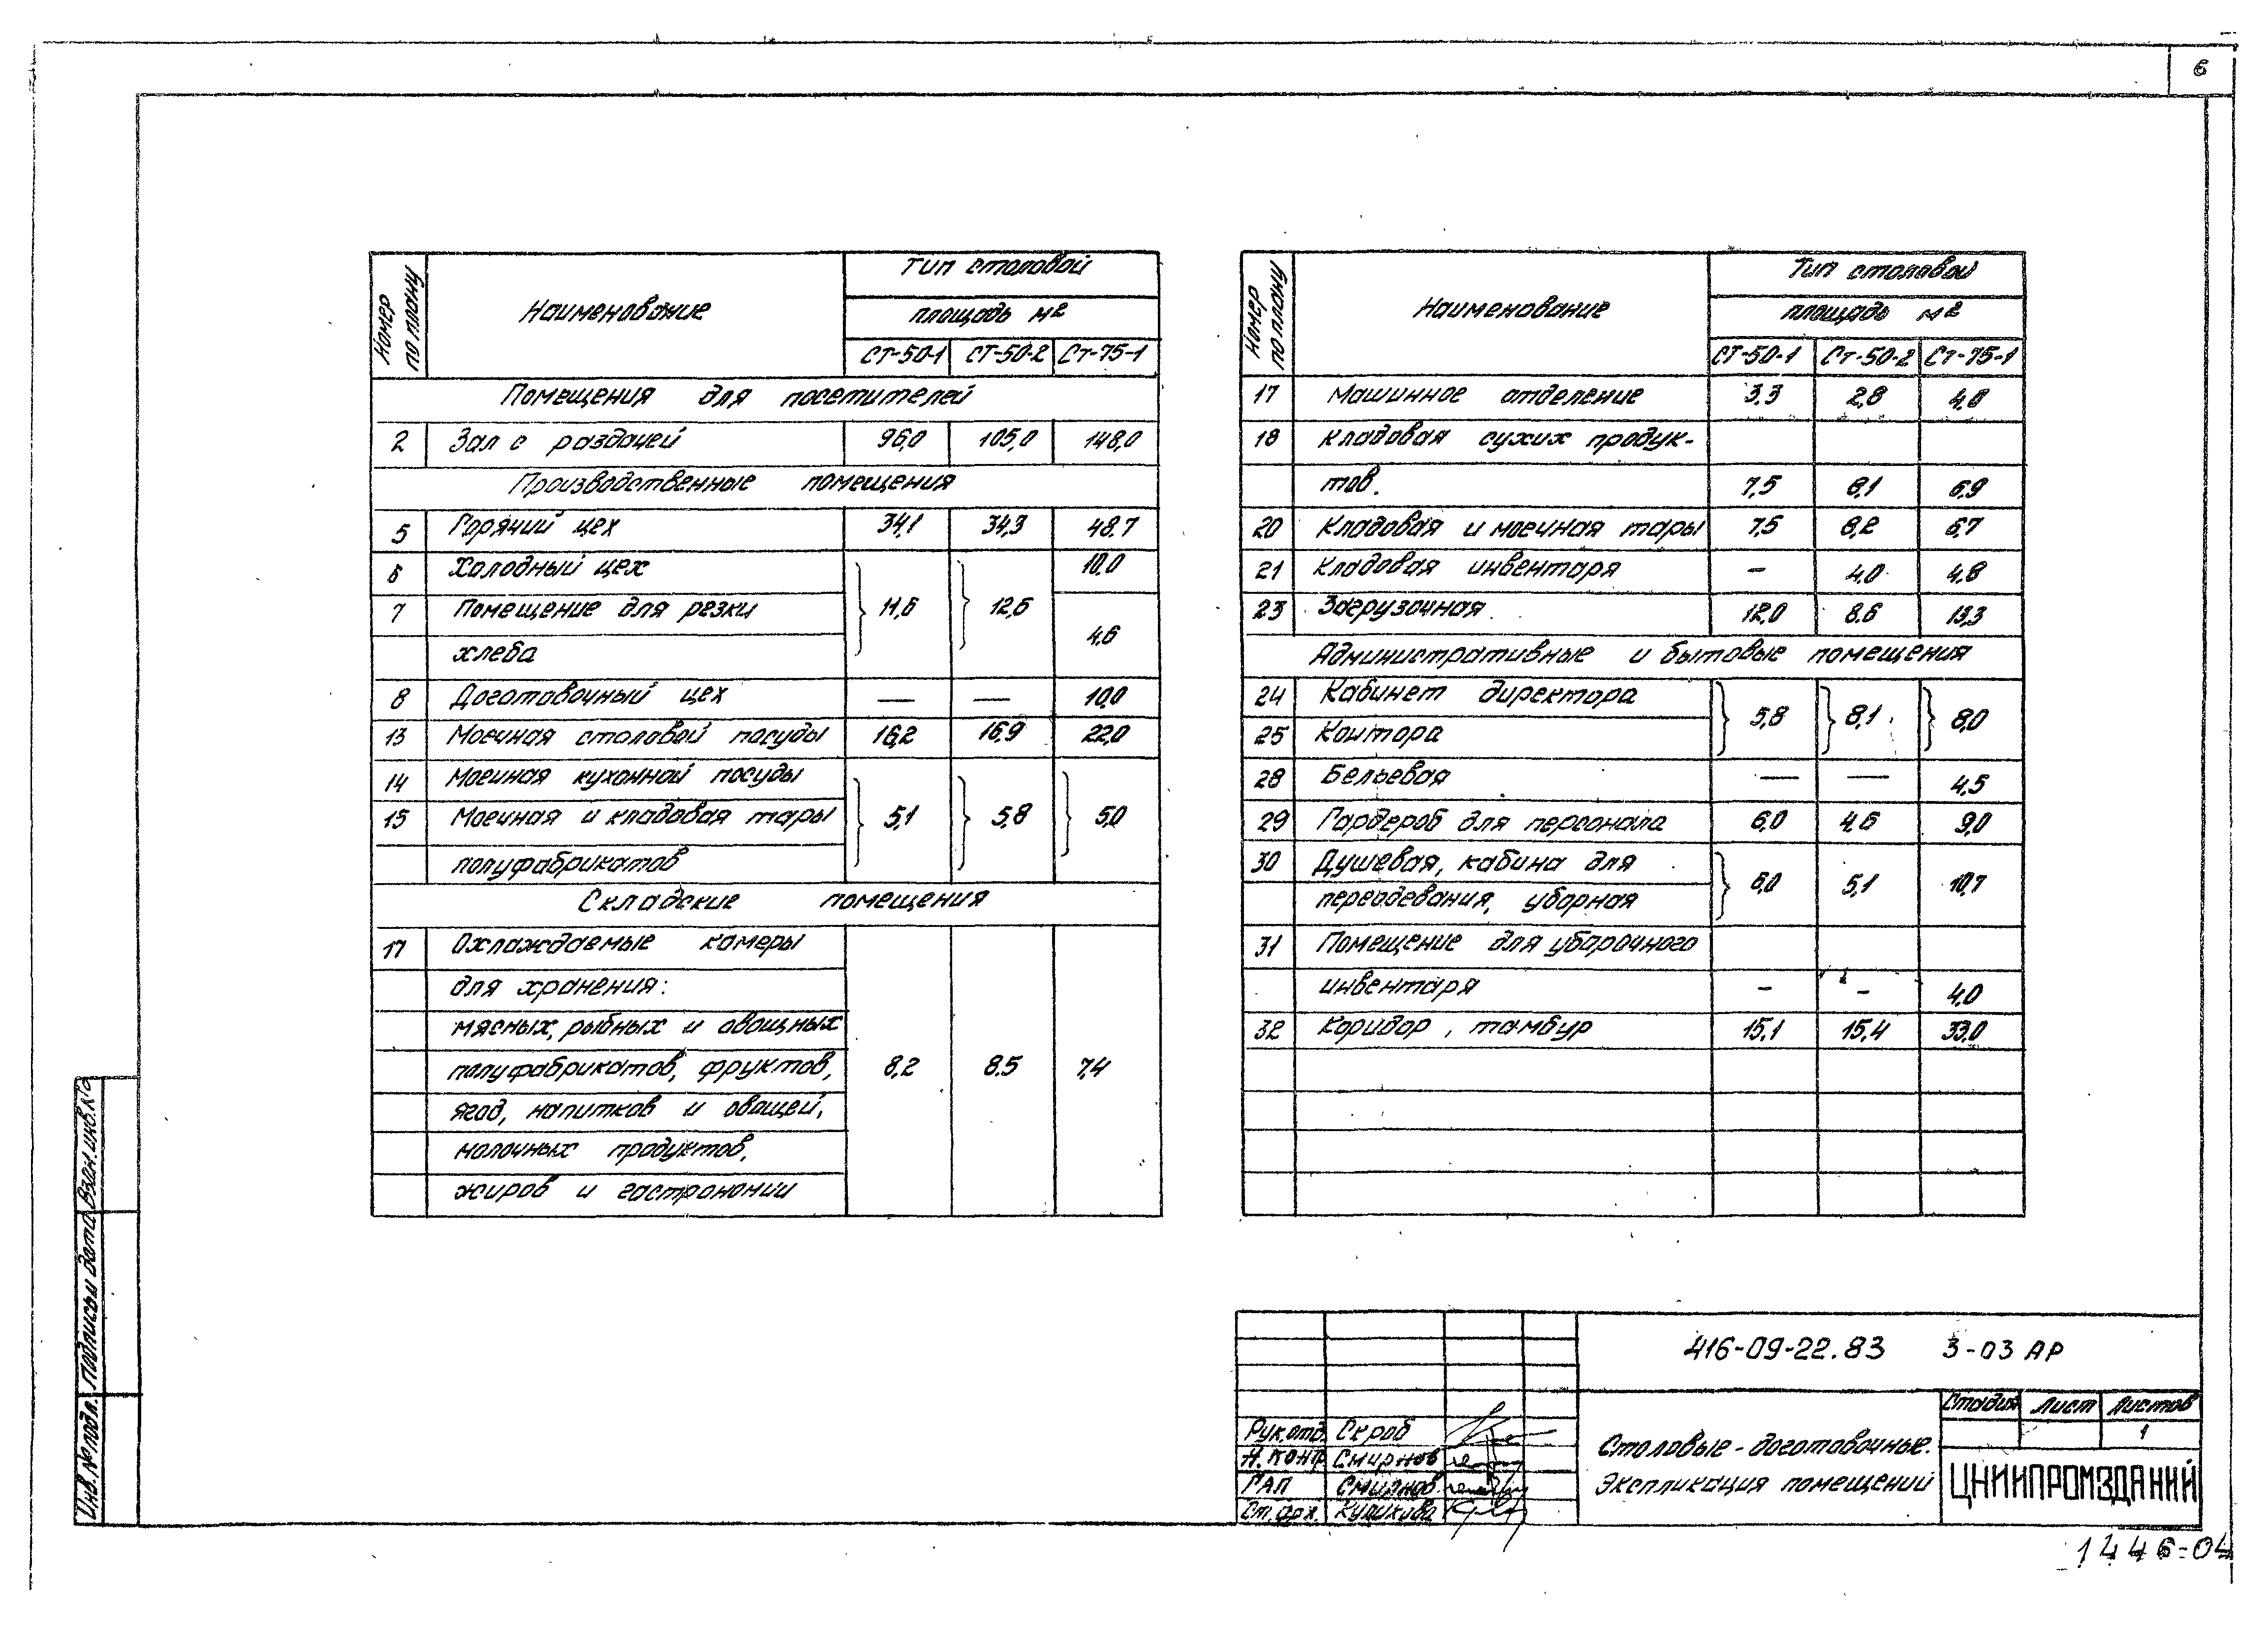 6
Номер по плану
Наименование
Тип столовой
площадь м2
СТ-50-1 СТ-50-2 Ст-75-1
Помещения для посетителей
2 Зал с раздачей 96,0 105,0 148,0
Производственные помещения
5 Горячий цех 34,1 34,3 48,7
6 Холодный цех 10,0
7 Помещение для резки 11,6 12,6
хлеба 4,6
8 Доготовочный цех — — 10,0
13 Моечная столовой посуды 16,2 16,9 22,0
14 Моечная кухонной посуды
15 Моечная и кладовая тары 5,1 5,8 5,0
полуфабрикатов
Складские помещения
17 Охлаждаемые камеры
для хранения:
мясных, рыбных и овощных
полуфабрикатов, фруктов, 8,2 8.5 7,4
ягод, напитков и овощей,
молочных продуктов,
жиров и гастрономии
Номер по плану
Наименование
Тип столовой
площадь м2
СТ-50-1 Ст-50-2 Ст-75-1
17 Машинное отделение 3.3 2,8 4,0
18 Кладовая сухих продук-
тов. 7,5 8,1 6,9
20 Кладовая и моечная тары 7,5 8,2 6,7
21 Кладовая инвентаря – 4,0 4,8
23 Загрузочная 12,0 8.6 13,3
Административные и бытовые помещения
24 Кабинет директора
25 Контора 5,8 8,1 8,0
28 Бельевая — — 4,5
29 Гардероб для персонала 6,0 4,6 9,0
30 Душевая, кабина для
переодевания, уборная 6,0 5,1 10,7
31 Помещение для уборочного
инвентаря – – 4,0
32 Коридор, тамбур 15,1 15,4 33,0
Инв. № подл. Подпись и дата Взам. инв. №
416-09-22.83 3-03 АР
Рук.отд. Скроб
Н. контр Смирнов
ГАП Смирнов
Ст. арх. Куликова
Столовые-доготовочные.
Экспликация помещений
Стадия Лист Листов
1
ЦНИИПРОМЗДАНИЙ
1446-04